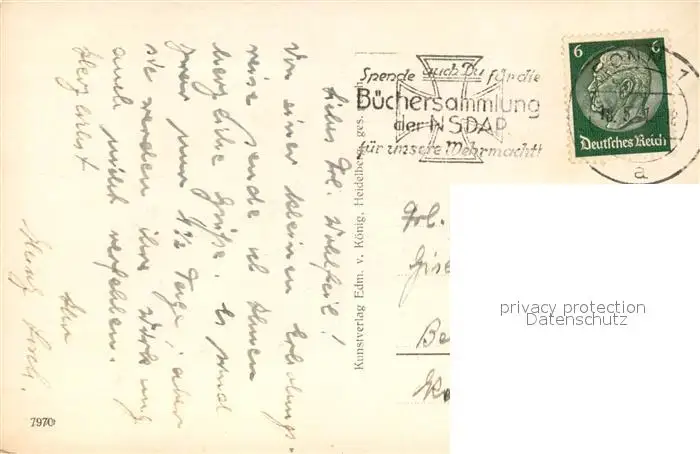 Liebes Frl. Wohlfeil!
Von einer kleinen Erholungs-
reise sende ich Ihnen
herzliche Grüße. Es sind
zwar nur 4½ Tage, aber
sie werden ihre Wirkung
auch nicht verfehlen.
Herzlichst
Ihr
7970
Kunstverlag Edm. v. König, Heidelberg ges. gesch.
Spende auch Du für die
Büchersammlung
der NSDAP
für unsere Wehrmacht!
BONN 1
a
6 6
Deutsches Reich
Frl.
Gise
Be
privacy protection
Datenschutz